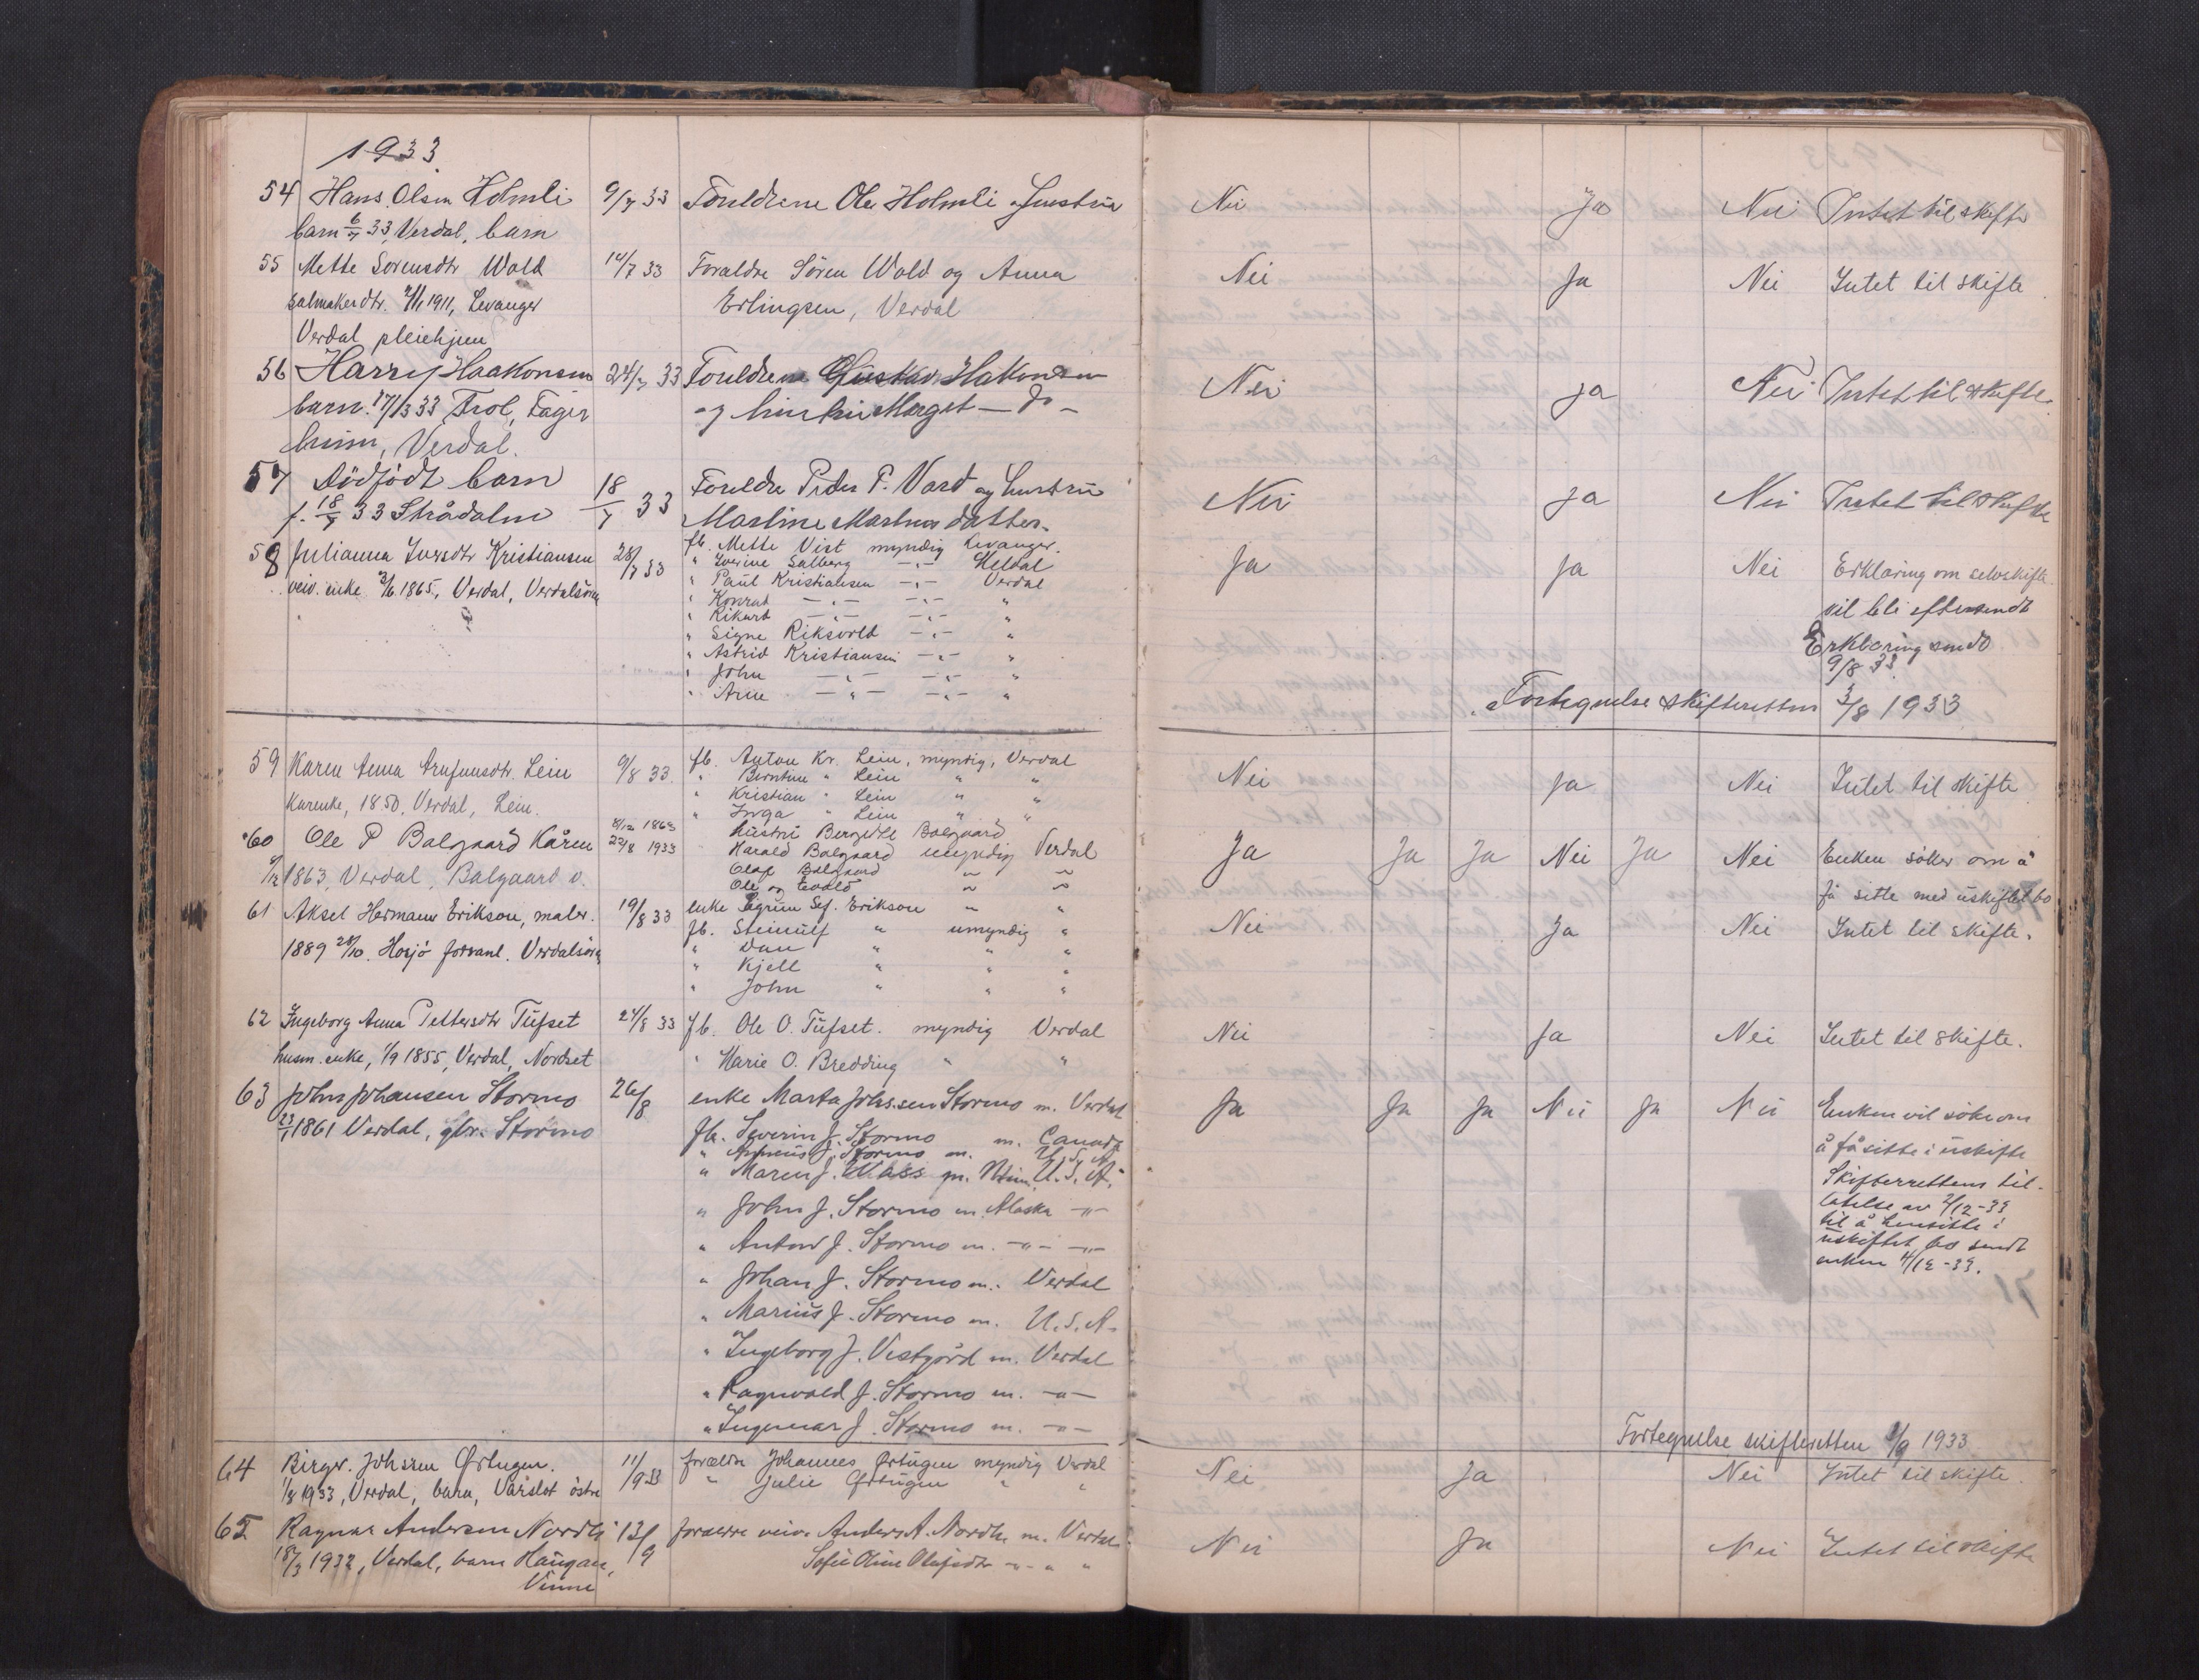 1933
54 Hans Olsen Holmli 9/7 33 Foreldrene Ole Holmli og hustru Nei Ja Nei Intet til skifte
barn 6/7 33, Verdal, barn
55 Mette Sorensdtr Wold 14/7 33 Forældre Sören Wold og Anna Nei Ja Nei Intet til skifte
salmakerdtr. 1911, Levanger Erlingsen, Verdal
Verdal pleiehjem
56 Harry Haakonsen 24/7 33 Foreldrene Gustav Hakonsen Nei Ja Nei Intet til skifte.
barn 17/3 33 Trol, Fager og hustru Marget — do —
heim, Verdal.
57 Dödfödt barn 18/7 33 Foreldre Peder P. Vard og hustru Nei Ja Nei Intet til skifte
f. 18/7 33 Strådalen Martine Martinusdatter.
58 Julianna Iversdtr Kristiansen 28/7 33 fb. Mette Vist myndig Levanger. Ja Ja Nei Erklæring om selvskifte
veiv. enke 1865, Verdal, Verdalsöra " Iverine Salberg —"— Heldal vil bli eftersendt
" Paul Kristiansen —"— Verdal
" Konrad —"— —"— "
" Rikard —"— —"— "
" Signe Riksvold —"— " Erklæring sendt
" Astrid Kristiansen —"— " 9/8 33.
" John —"— —"— "
" Arne —"— —"— " Fortegnelse skifteretten 3/8 1933
59 Karen Anna Arnfinnsdtr. Lein 9/8 33. fb. Anton Kr. Lein, myndig, Verdal Nei Ja Nei Intet til skifte
" Berntine " Lein " "
Kårenke, 1850, Verdal, Lein. " Kristian " Lein " "
" Inga " Lein " "
60 Ole P Balgaard Kåren 8/12 1863 22/8 1933 hustru Bergitte Balgaard Ja Ja Ja Nei Ja Nei Enken söker om å
Harald Balgaard umyndig Verdal få sitte med uskiftet bo
1863, Verdal, Balgaard ö. Olaf Balgaard " "
Ole og Evald " "
61 Aksel Hermann Erikson, maler. 19/8 33 enke Sigrun Sef. Erikson " " Nei Ja Nei Intet til skifte.
1889 28/10. Hosjö forsaml. Verdalsöra fb. Steinulf " umyndig "
" Dan " " "
" Kjell " " "
" John " " "
62 Ingeborg Anna Pettersdtr Tufset 24/8 33 fb. Ole O. Tufset. myndig Verdal Nei Ja Nei Intet til skifte.
husm. enke, 1/9 1855, Verdal, Nordset " Marie O. Bredding " "
63 John Johansen Stormo 26/8 enke Marta Johs.sen Stormo m. Verdal Ja Ja Ja Nei Ja Nei Enken vil söke om
1861 Verdal, gbr. Stormo fb. Severin J. Stormo m. Canada å få sitte i uskifte
" J. Stormo m. U.S.A. Skifterrettens til-
" Maren J. Wass m. U.S.A. latelse av 2/12-33
" John J. Stormo m. Alaska —"— til å hensitte i
" Anton J. Stormo m. —"— —"— uskiftet bo sendt
" Johan J. Stormo m. Verdal enken 4/12-33.
" Marius J. Stormo m. U.S.A.
" Ingeborg J. Vestgård m. Verdal
" Ragnvald J. Stormo m. —"—
" Ingemar J. Stormo m. —"—
Fortegnelse skifteretten 1/9 1933
64 Birger Johssen Örtugen. 11/9 33 foreldre Johannes Örtugen myndig Verdal Nei Ja Nei Intet til skifte.
1/8 1933, Verdal, barn, Vårslot östre " Julie Örtugen " "
65 Ragnar Andersen Nordli 13/9 foreldre veiv. Anders A. Nordli m. Verdal Nei Ja Nei Intet til skifte
18/3 1932, Verdal, barn Haugan, Sofie Oline Olufsdtr —"— "
Vinne